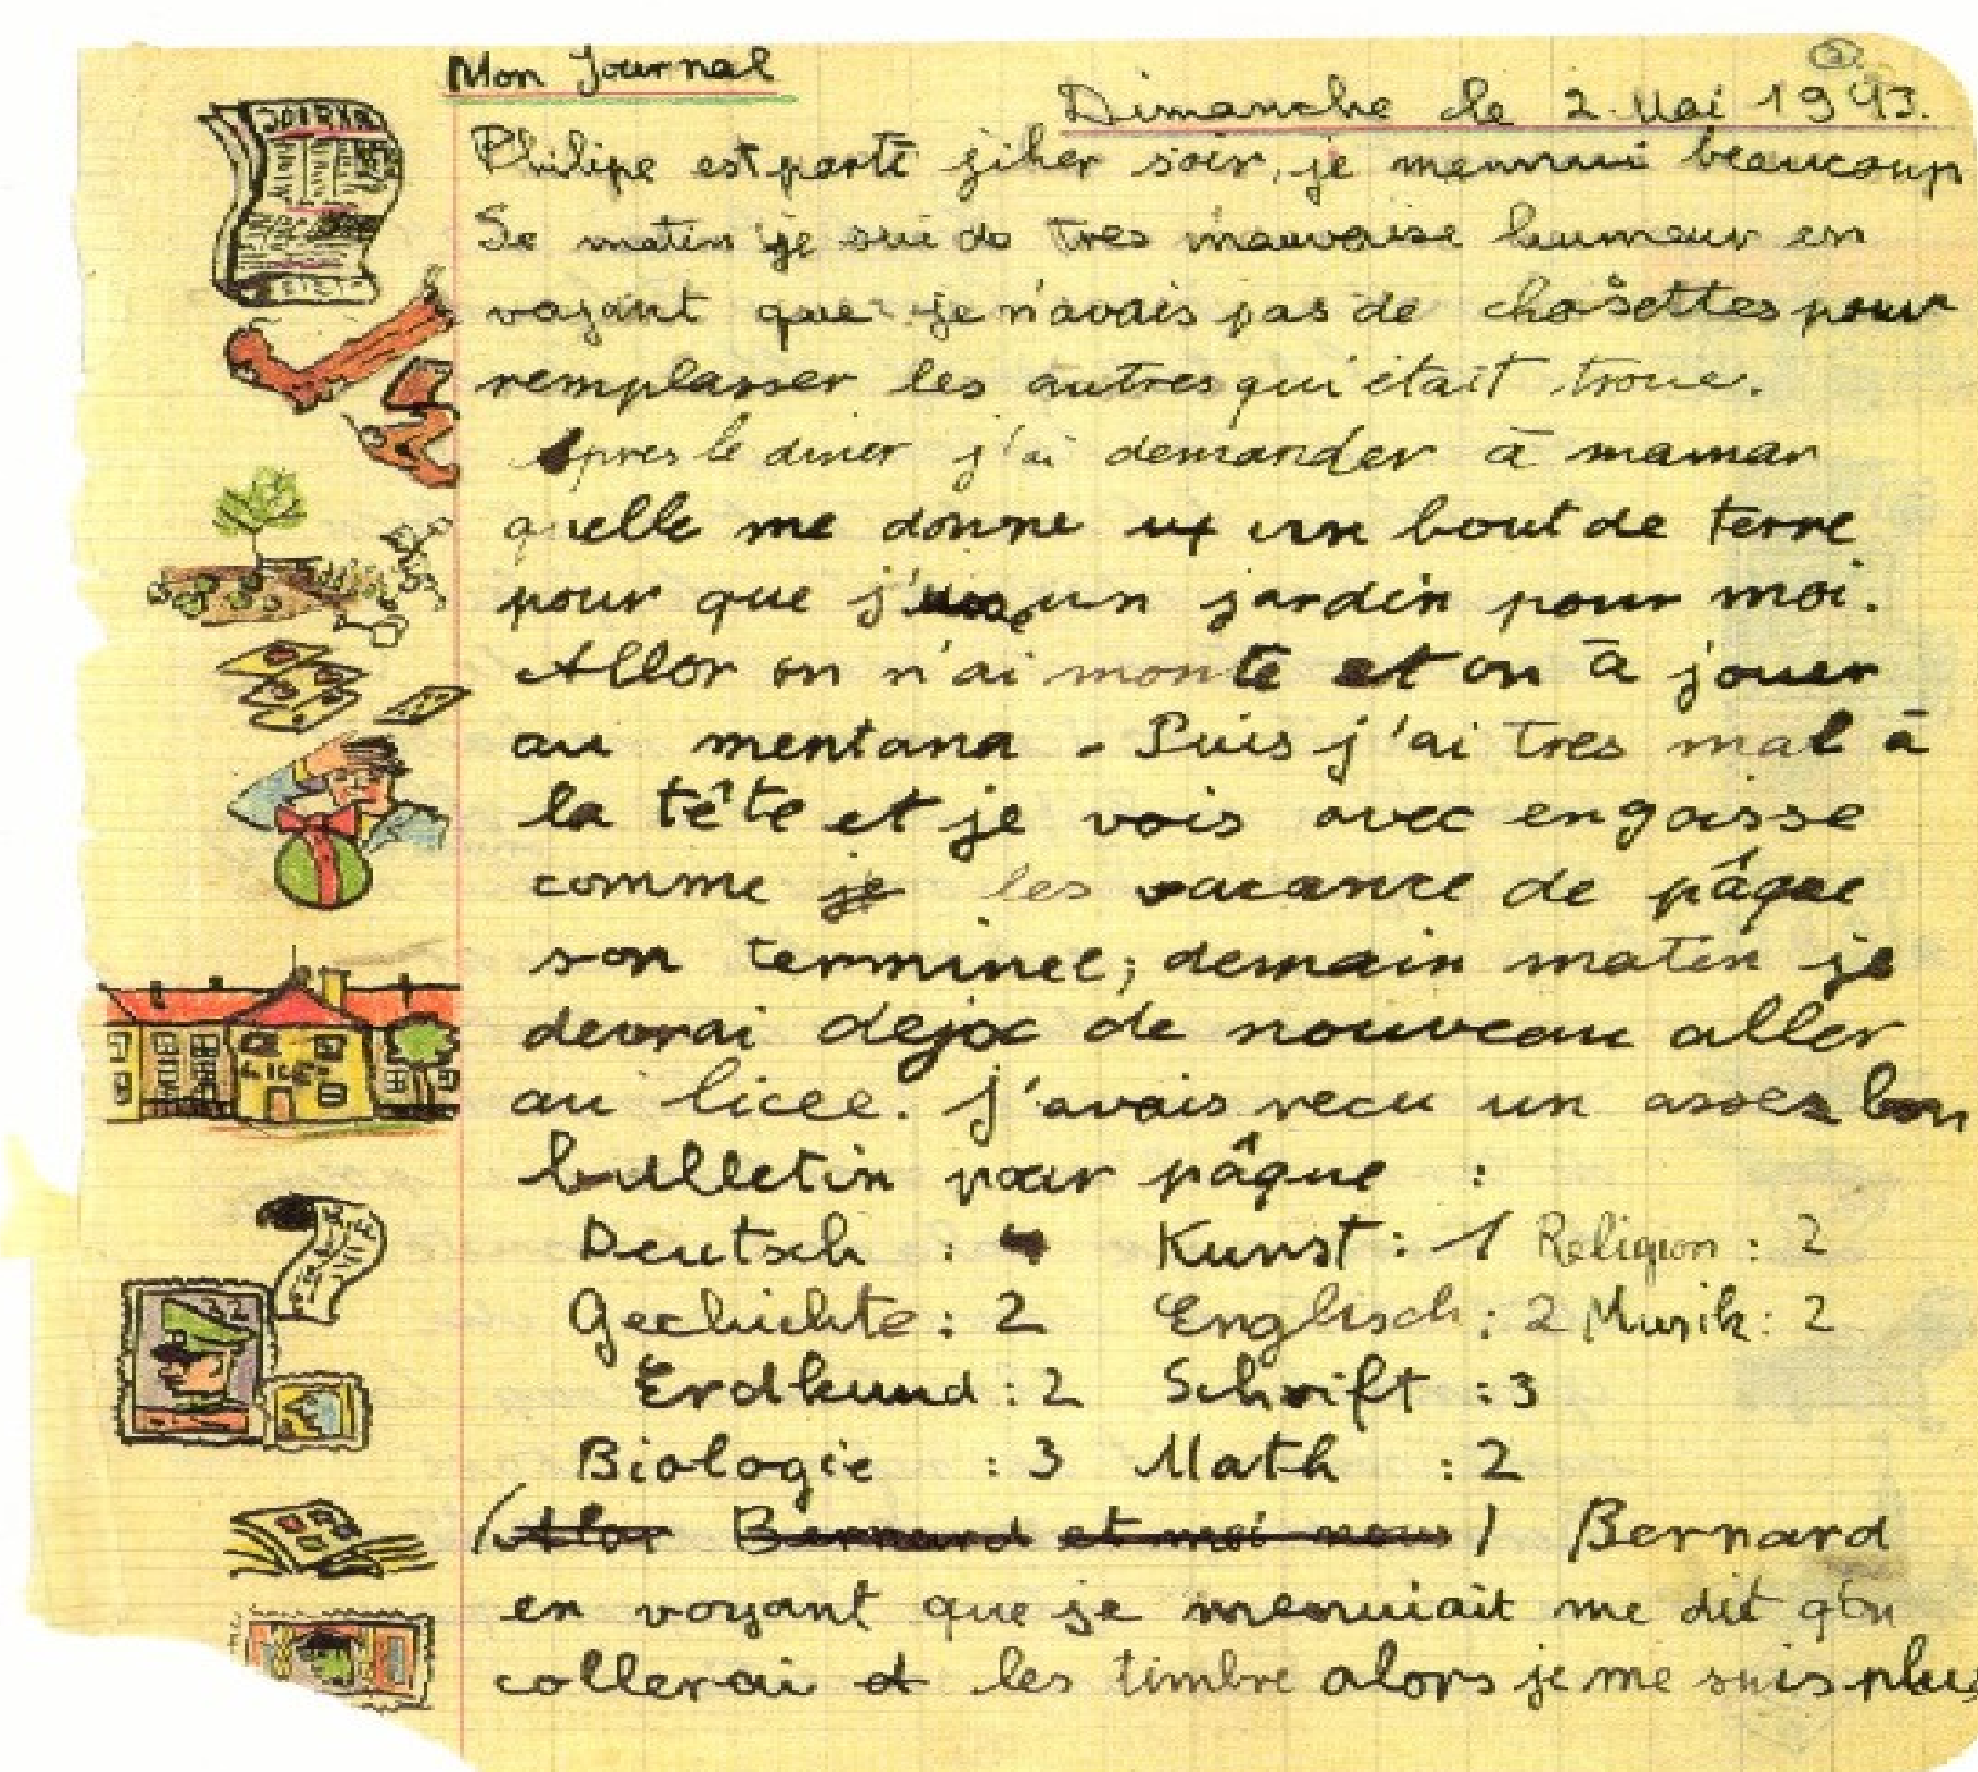 Mon Journal
Dimanche le 2 Mai 1943.
Philipe est parti hiher soir, je mennui beaucoup
Se matin je sui de tres mauvaise humeur en
voyant que je n'avais pas de chosettes pour
remplasser les autres qui était troue.
Apres le diner j'ai demander à maman
quelle me donne un bout de terre
pour que j'aie un jardin pour moi.
Allor on n'ai monté et on à jouer
au mentana - Puis j'ai tres mal à
la tête et je vois avec engoisse
comme je les vacance de pâque
son terminee; demain matin je
devrai deja de nouveau aller
au licee. J'avais recu un assez bon
bulletin pour pâque :
Deutsch : 4 Kunst : 1 Religion : 2
Gechichte : 2 Englisch : 2 Musik : 2
Erdkund : 2 Schrift : 3
Biologie : 3 Math : 2
(Alor Bernard et moi nous) Bernard
en voyant que je menuiait me dit qon
collerai les timbre alors je me suis plus
JOURNAL